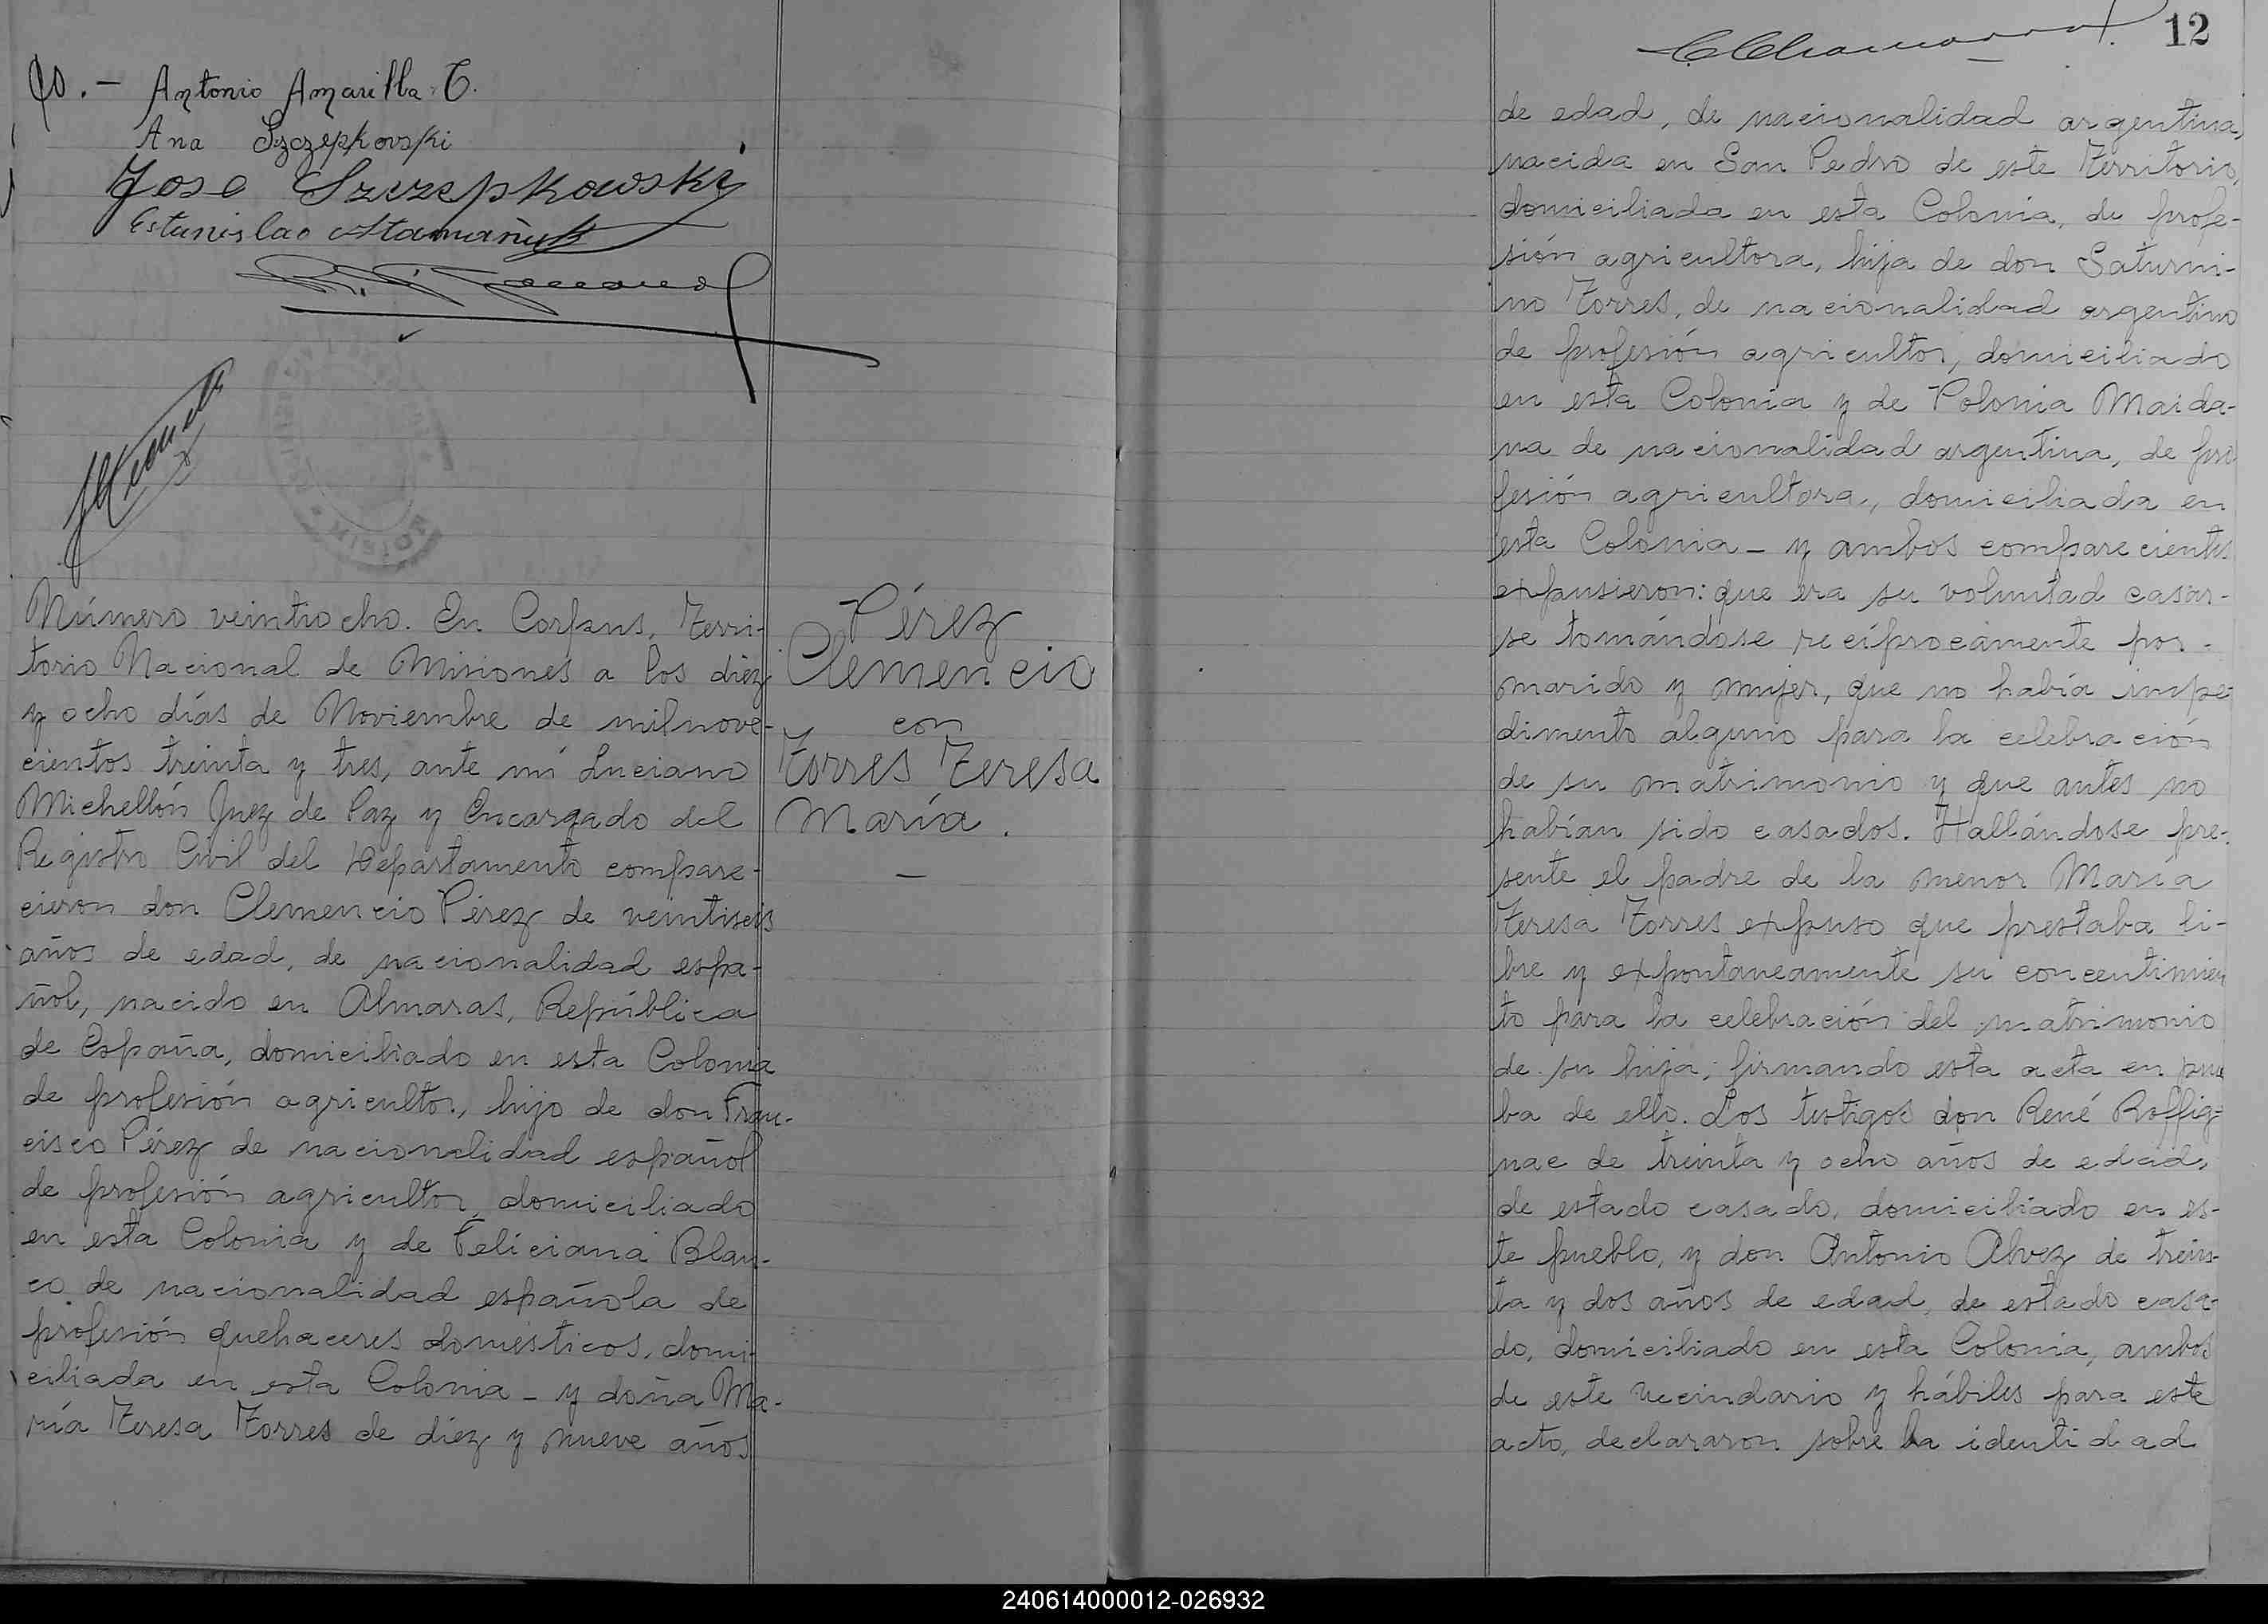 Antonio Amarilla T.
Ana Szczepkovski
Jose Szczepkowski
Estanislao
Número veintiocho. En Corpus, Terri-
torio Nacional de Misiones a los diez
y ocho días de Noviembre de milnove-
cientos treinta y tres, ante mí Luciano
Michellón Juez de Paz y Encargado del
Registro Civil del Departamento compare-
cieron don Clemencio Pérez de veintiseis
años de edad, de nacionalidad espa-
ñol, nacido en Almaras, República
de España, domiciliado en esta Colonia
de profesión agricultor, hijo de don Fran-
cisco Pérez de nacionalidad español
de profesión agricultor, domiciliado
en esta Colonia y de Feliciana Blan-
co de nacionalidad española de
profesión quehaceres domésticos, domi-
ciliada en esta Colonia - y doña Ma-
ría Teresa Torres de diez y nueve años
Pérez
Clemencio
con
Torres Teresa
María.
12
de edad, de nacionalidad argentina,
nacida en San Pedro de este Territorio,
domiciliada en esta Colonia, de profe-
sión agricultora, hija de don Saturni-
no Torres, de nacionalidad argentino
de profesión agricultor, domiciliado
en esta Colonia y de Polonia Maida-
na de nacionalidad argentina, de pro
fesión agricultora, domiciliada en
esta Colonia - y ambos comparecientes
expusieron: que era su voluntad casar-
se tomándose recíprocamente por
marido y mujer, que no había impe-
dimento alguno para la celebración
de su matrimonio y que antes no
habían sido casados. Hallándose pre-
sente el padre de la menor María
Teresa Torres expuso que prestaba li-
bre y expontaneamente su concentimien
to para la celebración del matrimonio
de su hija; firmando esta acta en prue
ba de ello. Los testigos don René Roffig-
nac de treinta y ocho años de edad,
de estado casado, domiciliado en es-
te pueblo, y don Antonio Alvez de trein-
ta y dos años de edad, de estado casa-
do, domiciliado en esta Colonia, ambos
de este vecindario y hábiles para este
acto, declararon sobre la identidad
240614000012-026932